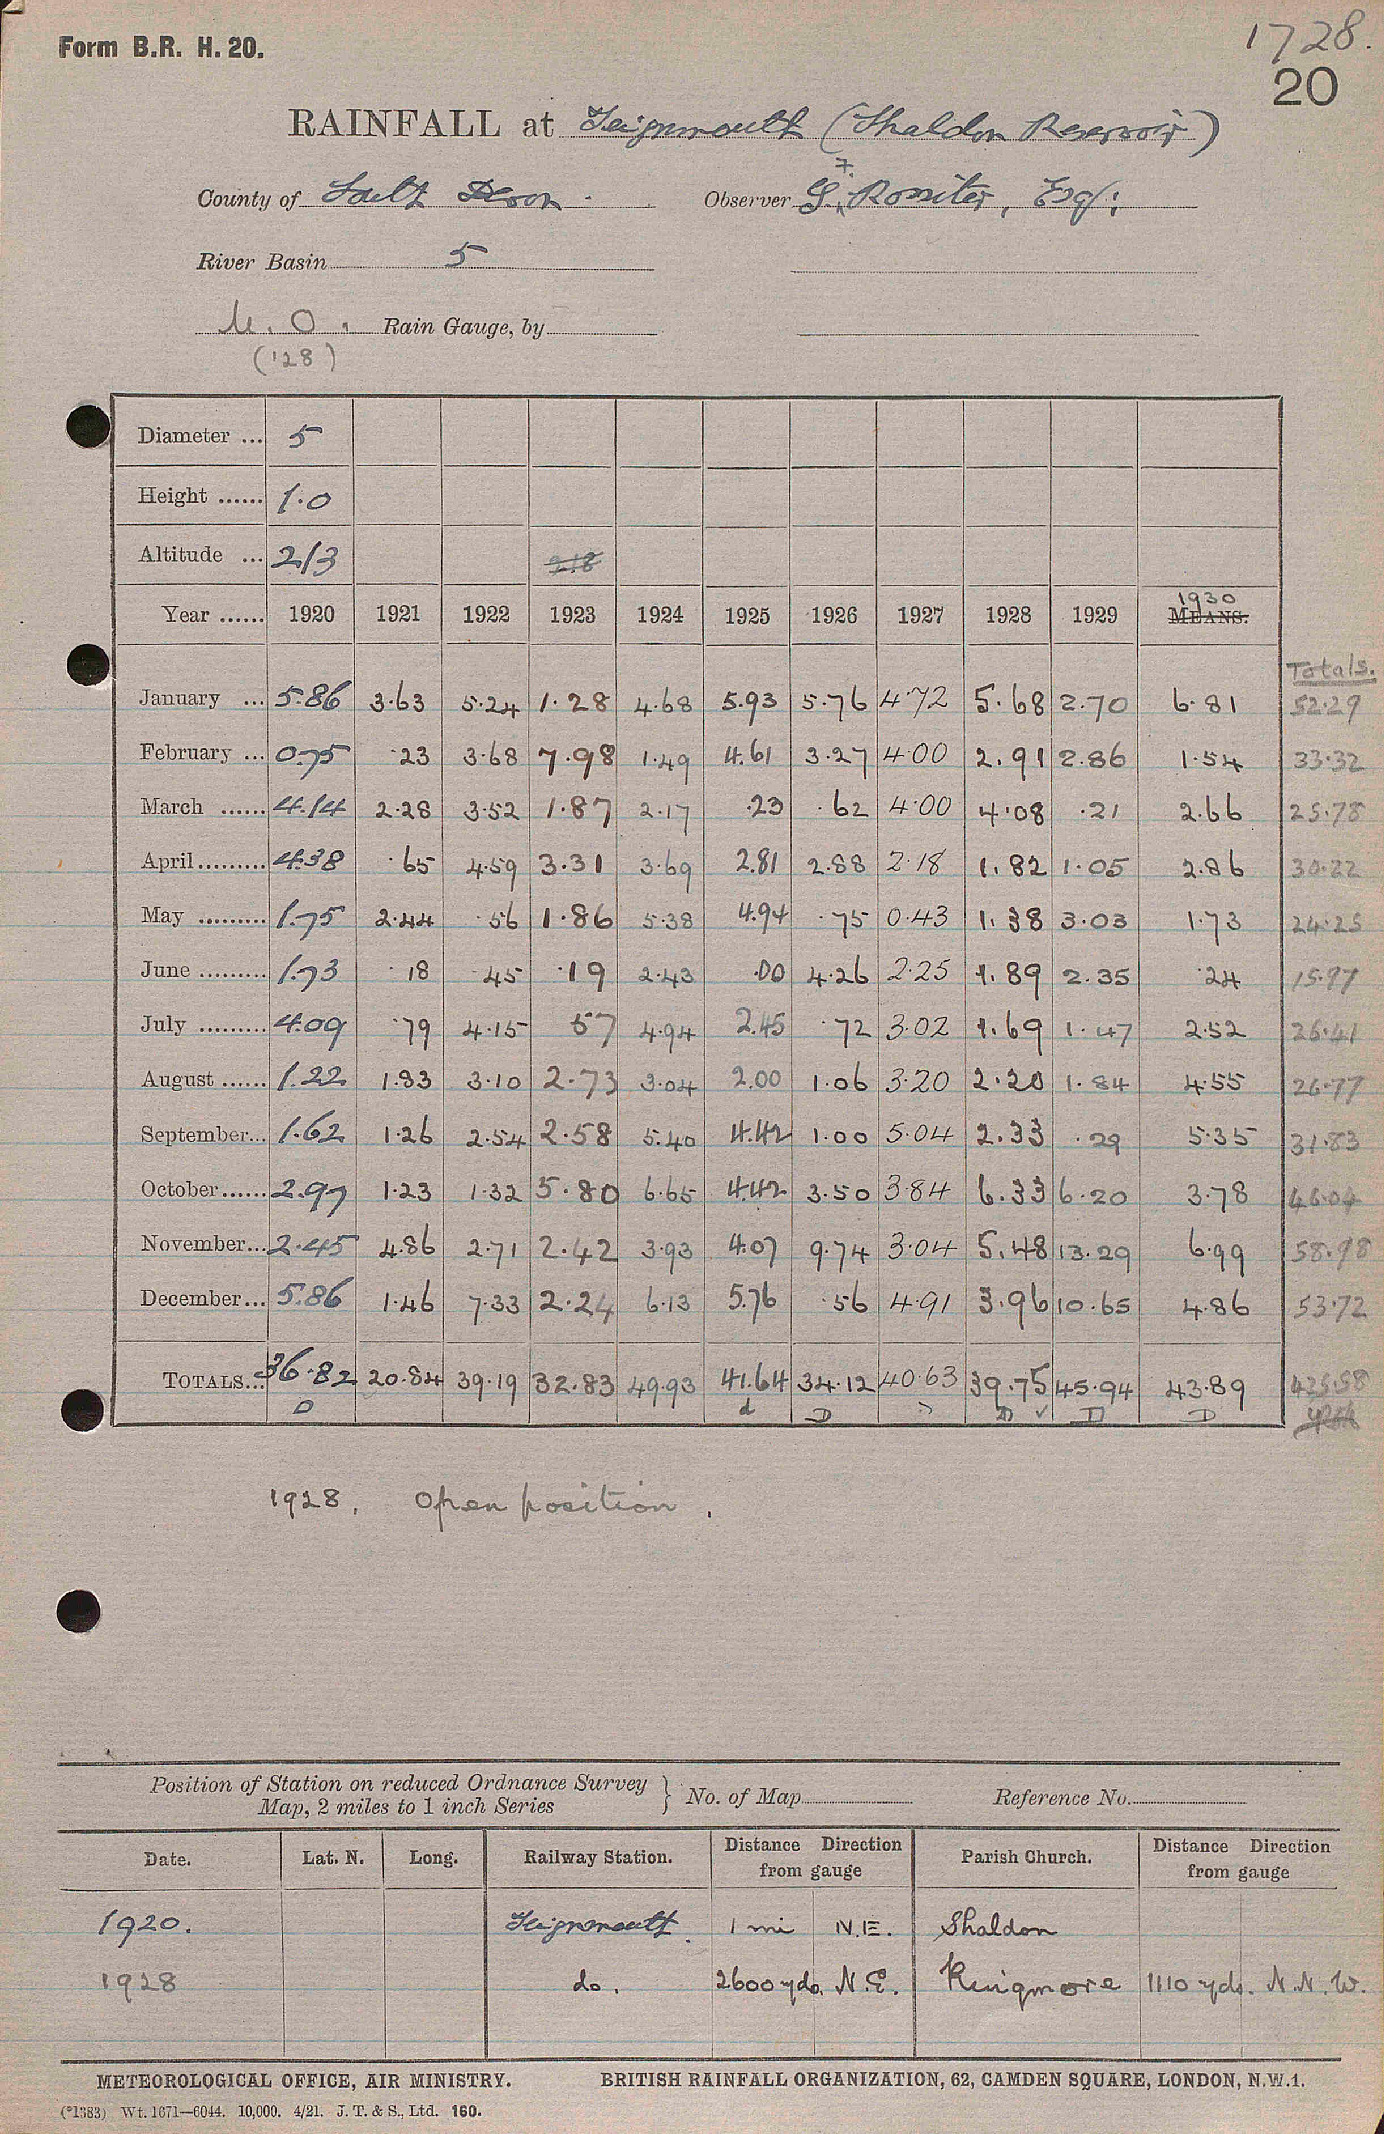 Form B.R. H. 20.
1728.
20
RAINFALL at Teignmouth (Shaldon Reservoir)
County of South Devon. Observer G. F. Rossiter, Esq:
River Basin 5
M. O. Rain Gauge, by
('28)
Diameter ... 5
Height ...... 1.0
Altitude ... 213 218
Year ...... 1920 1921 1922 1923 1924 1925 1926 1927 1928 1929 1930 MEANS.
Totals.
January ... 5.86 3.63 5.24 1.28 4.68 5.93 5.76 4.72 5.68 2.70 6.81 52.29
February ... 0.75 .23 3.68 7.98 1.49 4.61 3.27 4.00 2.91 2.86 1.54 33.32
March ...... 4.14 2.28 3.52 1.87 2.17 .23 .62 4.00 4.08 .21 2.66 25.78
April ......... 4.38 .65 4.59 3.31 3.69 2.81 2.88 2.18 1.82 1.05 2.86 30.22
May ......... 1.75 2.44 .56 1.86 5.38 4.94 .75 0.43 1.38 3.03 1.73 24.25
June ......... 1.73 .18 .45 .19 2.43 .00 4.26 2.25 1.89 2.35 .24 15.97
July ......... 4.09 .79 4.15 57 4.94 2.45 .72 3.02 1.69 1.47 2.52 26.41
August ...... 1.22 1.83 3.10 2.73 3.04 2.00 1.06 3.20 2.20 1.84 4.55 26.77
September... 1.62 1.26 2.54 2.58 5.40 4.42 1.00 5.04 2.33 .29 5.35 31.83
October...... 2.97 1.23 1.32 5.80 6.65 4.42 3.50 3.84 6.33 6.20 3.78 46.04
November... 2.45 4.86 2.71 2.42 3.93 4.07 9.74 3.04 5.48 13.29 6.99 58.98
December... 5.86 1.46 7.33 2.24 6.13 5.76 .56 4.91 3.96 10.65 4.86 53.72
TOTALS... 36.82 20.84 39.19 32.83 49.93 41.64 34.12 40.63 39.75 45.94 43.89 425.58
D d D D D ✓ D D
1928. Open position.
Position of Station on reduced Ordnance Survey
Map, 2 miles to 1 inch Series } No. of Map Reference No.
Date. Lat. N. Long. Railway Station. Distance Direction from gauge Parish Church. Distance Direction from gauge
1920. Teignmouth. 1 mi N.E. Shaldon
1928 do. 2600 yds. N.E. Ringmore 1110 yds. N.N.W.
METEOROLOGICAL OFFICE, AIR MINISTRY. BRITISH RAINFALL ORGANIZATION, 62, CAMDEN SQUARE, LONDON, N.W.1.
(*1383) Wt. 1671—6044. 10,000. 4/21. J. T. & S., Ltd. 160.